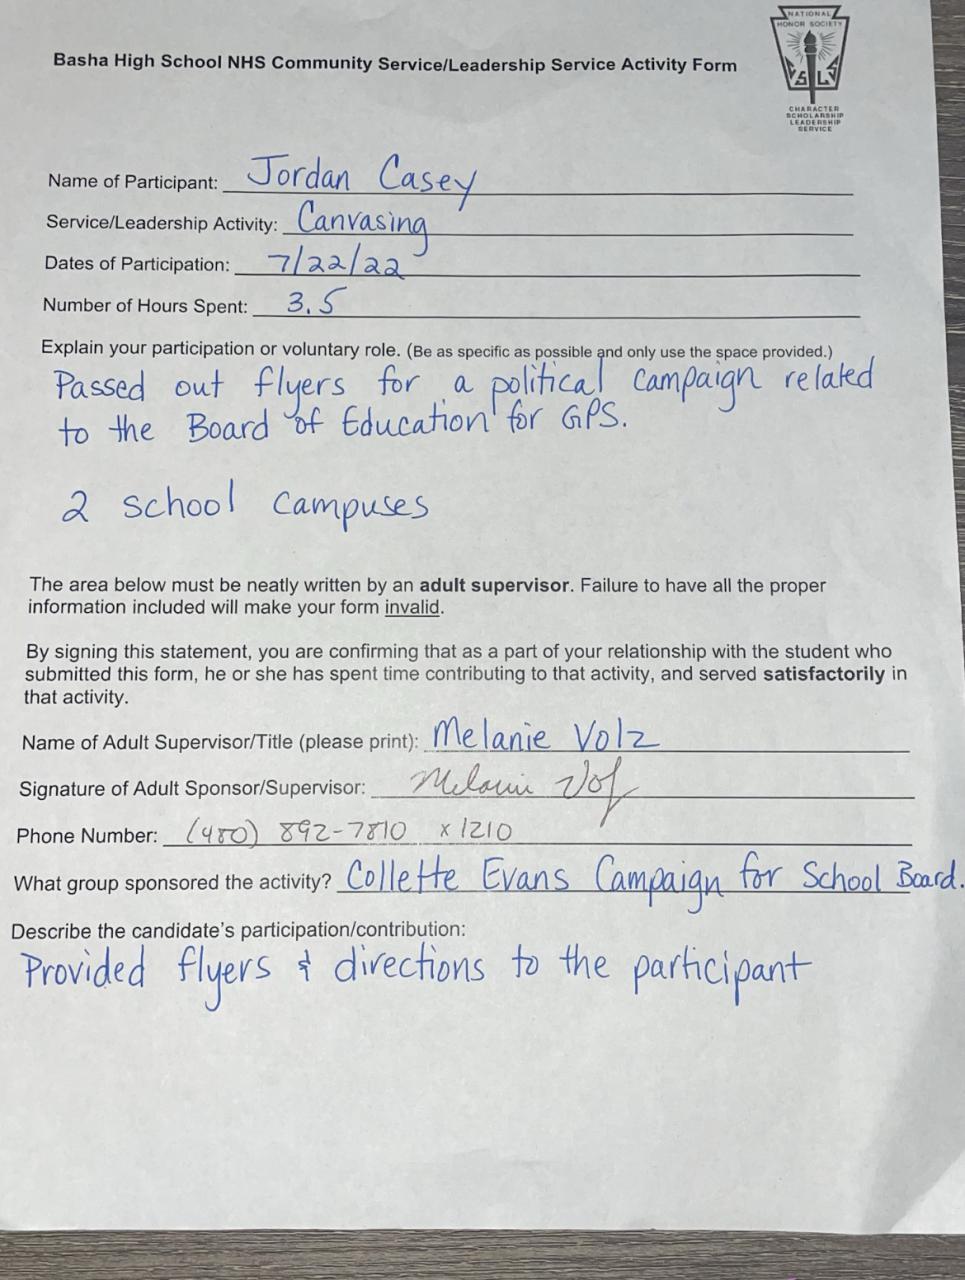 NATIONAL
HONOR SOCIETY
S L
CHARACTER
SCHOLARSHIP
LEADERSHIP
SERVICE
Basha High School NHS Community Service/Leadership Service Activity Form
Name of Participant: Jordan Casey
Service/Leadership Activity: Canvasing
Dates of Participation: 7/22/22
Number of Hours Spent: 3.5
Explain your participation or voluntary role. (Be as specific as possible and only use the space provided.)
Passed out flyers for a political campaign related
to the Board of Education for GPS.
2 school campuses
The area below must be neatly written by an adult supervisor. Failure to have all the proper
information included will make your form invalid.
By signing this statement, you are confirming that as a part of your relationship with the student who
submitted this form, he or she has spent time contributing to that activity, and served satisfactorily in
that activity.
Name of Adult Supervisor/Title (please print): Melanie Volz
Signature of Adult Sponsor/Supervisor: Melanie Volz
Phone Number: (480) 892-7810 x 1210
What group sponsored the activity? Collette Evans Campaign for School Board.
Describe the candidate's participation/contribution:
Provided flyers & directions to the participant